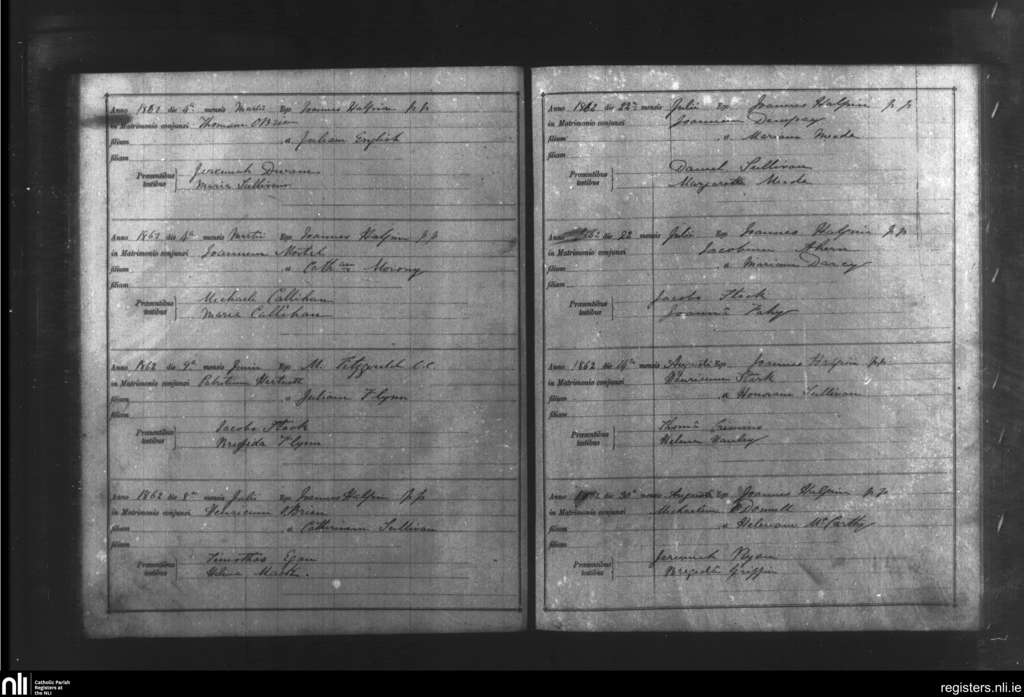 Anno 1862 die 4ª mensis Martii Ego Joannes Halpin p.p.
in Matrimonio conjunxi Thomam O'Brien
filium a Juliam English
filiam
Præsentibus testibus
Jeremiah Dwan
Maria Sullivan
Anno 1862 die 4ª mensis Martii Ego Joannes Halpin p.p.
in Matrimonio conjunxi Joannem
filium a Cath am
filiam
Præsentibus testibus
Michaele Callihan
Maria Callihan
Anno 1862 die 9ª mensis Junii Ego M. Fitzgerald C.C.
in Matrimonio conjunxi Patritium Hartnett
filium a Juliam Flynn
filiam
Præsentibus testibus
Jacobo Stack
Brigida Flynn
Anno 1862 die 8ª mensis Julii Ego Joannes Halpin p.p.
in Matrimonio conjunxi Henricum O'Brien
filium a Catherinam Sullivan
filiam
Præsentibus testibus
Timotheo Egan
Helena
Anno 1862 die 22ª mensis Julii Ego Joannes Halpin p.p.
in Matrimonio conjunxi Joannem Dempsey
filium a Mariam Meade
filiam
Præsentibus testibus
Daniel Sullivan
Margarita Meade
Anno 1862 die 22 mensis Julii Ego Joannes Halpin p.p.
in Matrimonio conjunxi Jacobum Ahern
filium a Mariam Darcy
filiam
Præsentibus testibus
Jacobo Stack
Joanna Fahy
Anno 1862 die 14ª mensis Augusti Ego Joannes Halpin p.p.
in Matrimonio conjunxi Henricum Stark
filium a Honoram Sullivan
filiam
Præsentibus testibus
Thoma
Helena
Anno 1862 die 30ª mensis Augusti Ego Joannes Halpin p.p.
in Matrimonio conjunxi Michaelem McDonnell
filium a Helenam McCarthy
filiam
Præsentibus testibus
Jeremiah Ryan
Brigida Griffin
nli Catholic Parish
Registers at
the NLI
registers.nli.ie